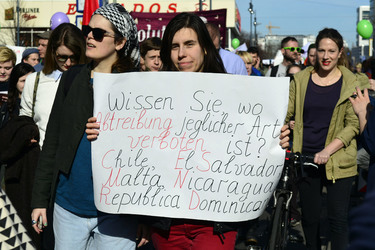 Wissen Sie, wo
Abtreibung jeglicher Art
verboten ist?
Chile El Salvador
Malta Nicaragua
Republica Dominicana